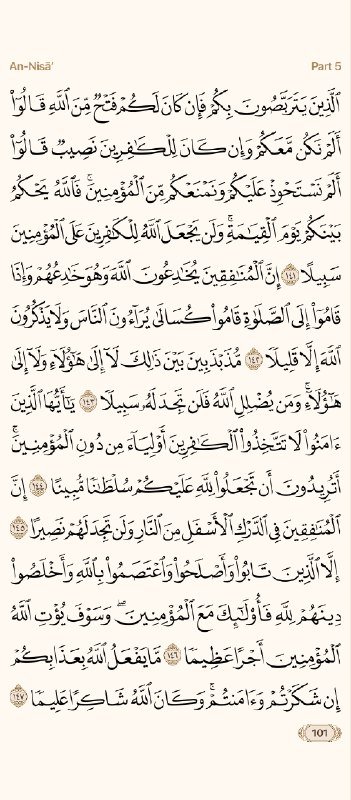 An-Nisā’ Part 5
ٱلَّذِينَ يَتَرَبَّصُونَ بِكُمۡ فَإِن كَانَ لَكُمۡ فَتۡحٞ مِّنَ ٱللَّهِ قَالُوٓاْ
أَلَمۡ نَكُن مَّعَكُمۡ وَإِن كَانَ لِلۡكَٰفِرِينَ نَصِيبٞ قَالُوٓاْ
أَلَمۡ نَسۡتَحۡوِذۡ عَلَيۡكُمۡ وَنَمۡنَعۡكُم مِّنَ ٱلۡمُؤۡمِنِينَۚ فَٱللَّهُ يَحۡكُمُ
بَيۡنَكُمۡ يَوۡمَ ٱلۡقِيَٰمَةِۚ وَلَن يَجۡعَلَ ٱللَّهُ لِلۡكَٰفِرِينَ عَلَى ٱلۡمُؤۡمِنِينَ
سَبِيلًا ١٤١ إِنَّ ٱلۡمُنَٰفِقِينَ يُخَٰدِعُونَ ٱللَّهَ وَهُوَ خَٰدِعُهُمۡ وَإِذَا
قَامُوٓاْ إِلَى ٱلصَّلَوٰةِ قَامُواْ كُسَالَىٰ يُرَآءُونَ ٱلنَّاسَ وَلَا يَذۡكُرُونَ
ٱللَّهَ إِلَّا قَلِيلٗا ١٤٢ مُّذَبۡذَبِينَ بَيۡنَ ذَٰلِكَ لَآ إِلَىٰ هَٰٓؤُلَآءِ وَلَآ إِلَىٰ
هَٰٓؤُلَآءِۚ وَمَن يُضۡلِلِ ٱللَّهُ فَلَن تَجِدَ لَهُۥ سَبِيلٗا ١٤٣ يَٰٓأَيُّهَا ٱلَّذِينَ
ءَامَنُواْ لَا تَتَّخِذُواْ ٱلۡكَٰفِرِينَ أَوۡلِيَآءَ مِن دُونِ ٱلۡمُؤۡمِنِينَۚ
أَتُرِيدُونَ أَن تَجۡعَلُواْ لِلَّهِ عَلَيۡكُمۡ سُلۡطَٰنٗا مُّبِينًا ١٤٤ إِنَّ
ٱلۡمُنَٰفِقِينَ فِي ٱلدَّرۡكِ ٱلۡأَسۡفَلِ مِنَ ٱلنَّارِ وَلَن تَجِدَ لَهُمۡ نَصِيرًا ١٤٥
إِلَّا ٱلَّذِينَ تَابُواْ وَأَصۡلَحُواْ وَٱعۡتَصَمُواْ بِٱللَّهِ وَأَخۡلَصُواْ
دِينَهُمۡ لِلَّهِ فَأُوْلَٰٓئِكَ مَعَ ٱلۡمُؤۡمِنِينَۖ وَسَوۡفَ يُؤۡتِ ٱللَّهُ
ٱلۡمُؤۡمِنِينَ أَجۡرًا عَظِيمٗا ١٤٦ مَّا يَفۡعَلُ ٱللَّهُ بِعَذَابِكُمۡ
إِن شَكَرۡتُمۡ وَءَامَنتُمۡۚ وَكَانَ ٱللَّهُ شَاكِرًا عَلِيمٗا ١٤٧
101